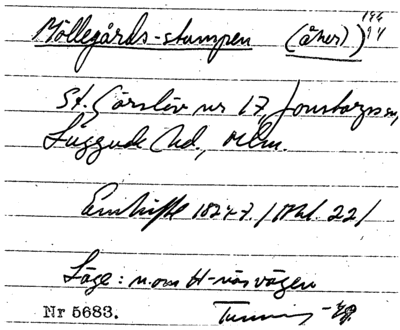 Möllegårds-stumpen (åker)
St. Görslöv nr 17, Jonstorps sn,
Luggude hd., Mlm.
Enskifte 1824-7. / Akt. 22/
Läge: n. om H-näsvägen
Nr 5683.